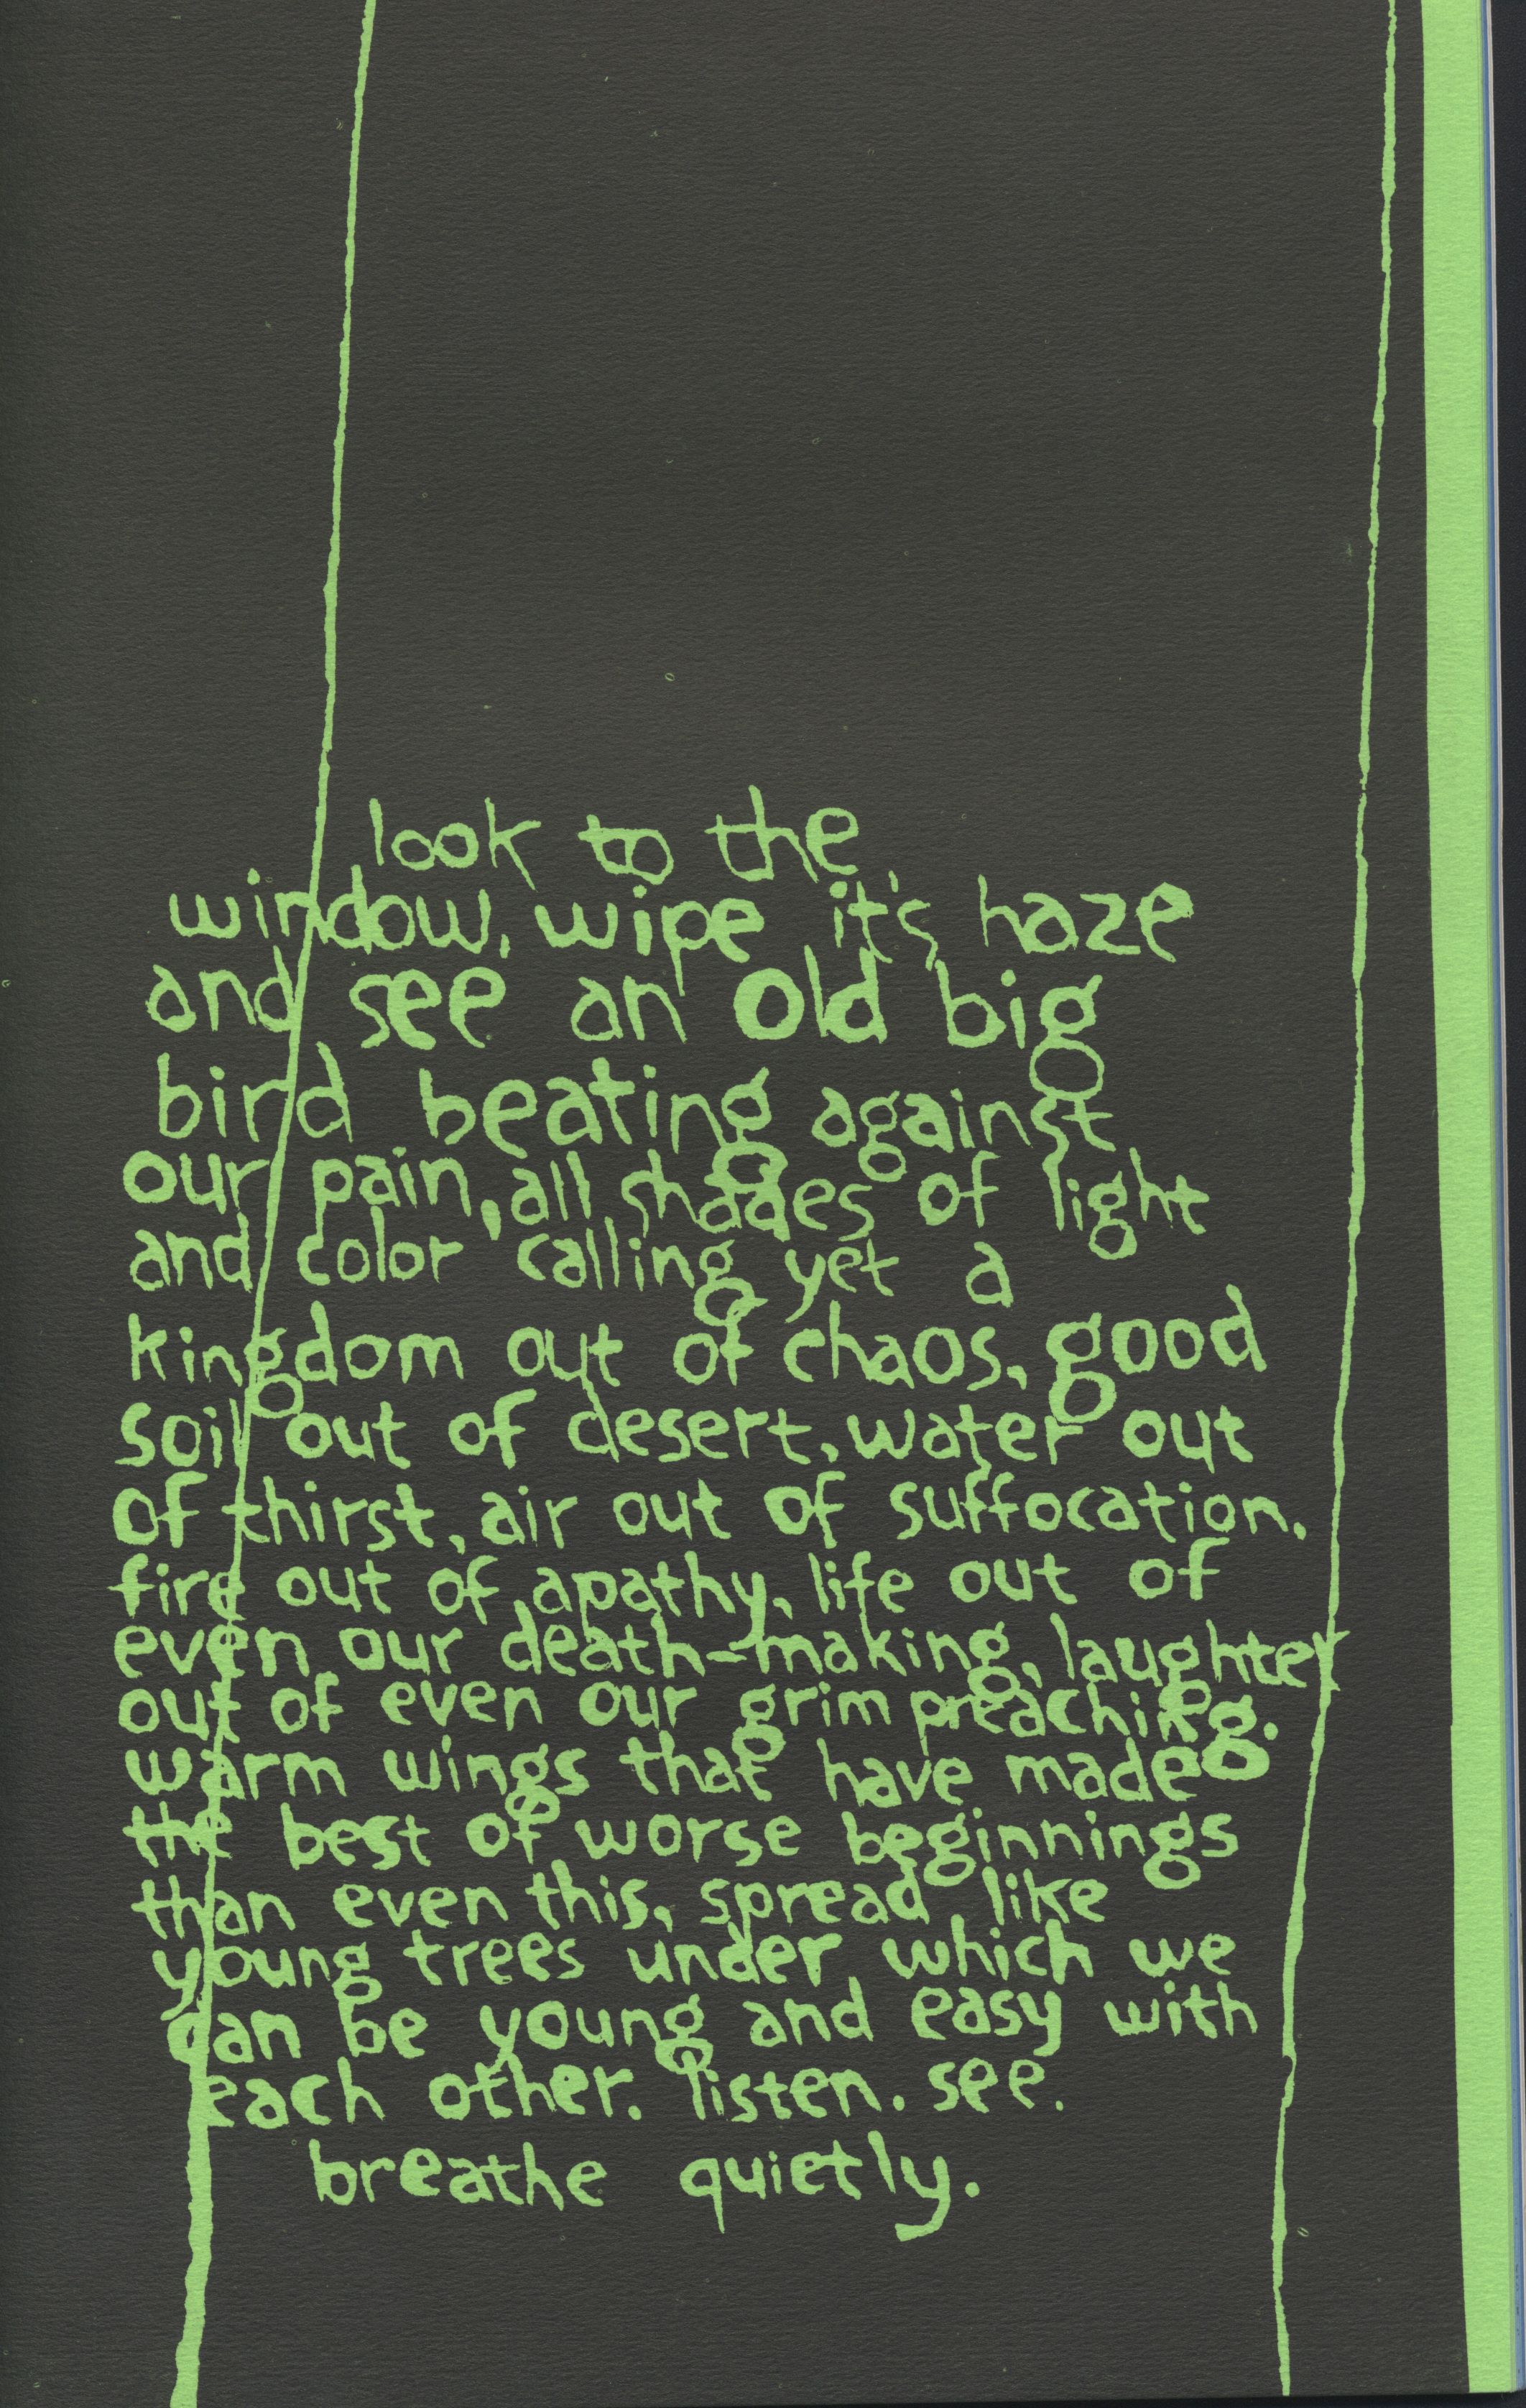 look to the
window, wipe it's haze
and see an old big
bird beating against
our pain, all shades of light
and color calling yet a
kingdom out of chaos, good
soil out of desert, water out
of thirst, air out of suffocation,
fire out of apathy, life out of
even our death-making, laughter
out of even our grim preaching.
warm wings that have made
the best of worse beginnings
than even this, spread like
young trees under which we
can be young and easy with
each other. listen. see.
breathe quietly.